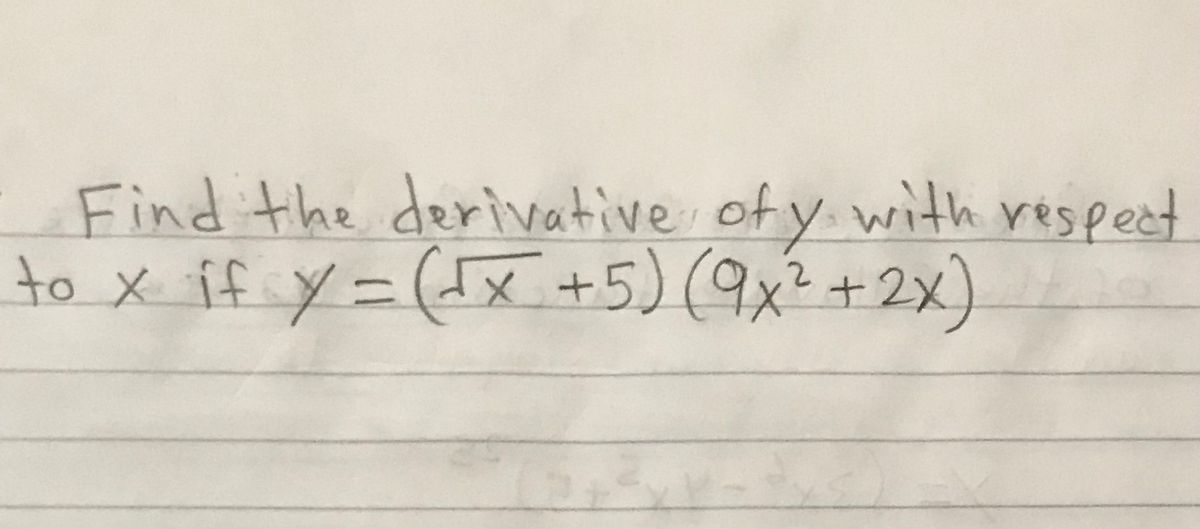 Find the derivative of y with respect
to x if y = (√x + 5) (9x² + 2x)